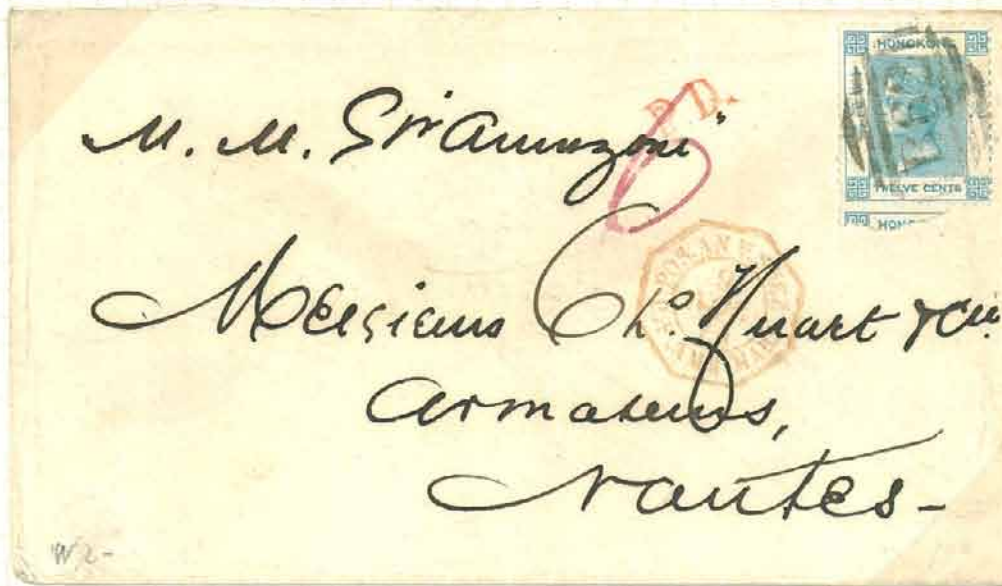 P.D.
HONGKONG
B62
TWELVE CENTS
HONG
M. M. Str Amazone"
6
Messieurs Ch.s Huart & Cie.
Armateurs,
Nantes-